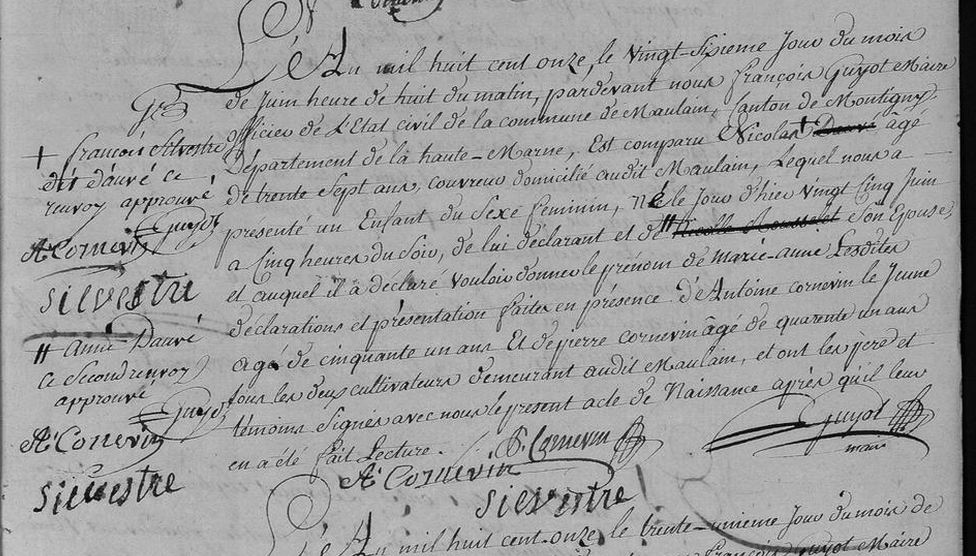 L'An mil huit cent onze, le vingt-sixieme Jour du mois
de Juin heure de huit du matin, pardevant nous françois Guyot Maire
officier de L'Etat civil de la commune de Maulain, Canton de Montigny
Département de la haute-Marne, Est comparu Nicolas + Dauvé âgé
de trente Sept ans, couvreur domicilié audit Maulain, Lequel nous a
présenté un Enfant du Sexe feminin, né le Jour d'hier vingt Cinq Juin
a Cinq heures du Soir, de lui déclarant et de # Nicolle Rousselot Son Epouse,
et auquel il à déclaré vouloir donner le prénom de Marie-anne Lesdites
déclarations et présentation faites en présence d'Antoine cornevin le Jeune
âgé de cinquante un ans Et de pierre cornevin âgé de quarente un ans
tous les deux cultivateurs demeurant audit Maulain, et ont les père et
témoins Signés avec nous le present acte de Naissance après qu'il leur
en a été fait Lecture.
A Cornevin
P. Cornevin
Guyot
maire
Silvestre
+ françois Silvestre
dit dauvé ce
renvoy approuvé
Guyot
A Cornevin
silvestre
# Anne Dauvé
ce Second renvoy
approuvé
Guyot
A Cornevin
silvestre
L'An mil huit cent onze, le trente-unieme Jour du mois de
françois Guyot Maire